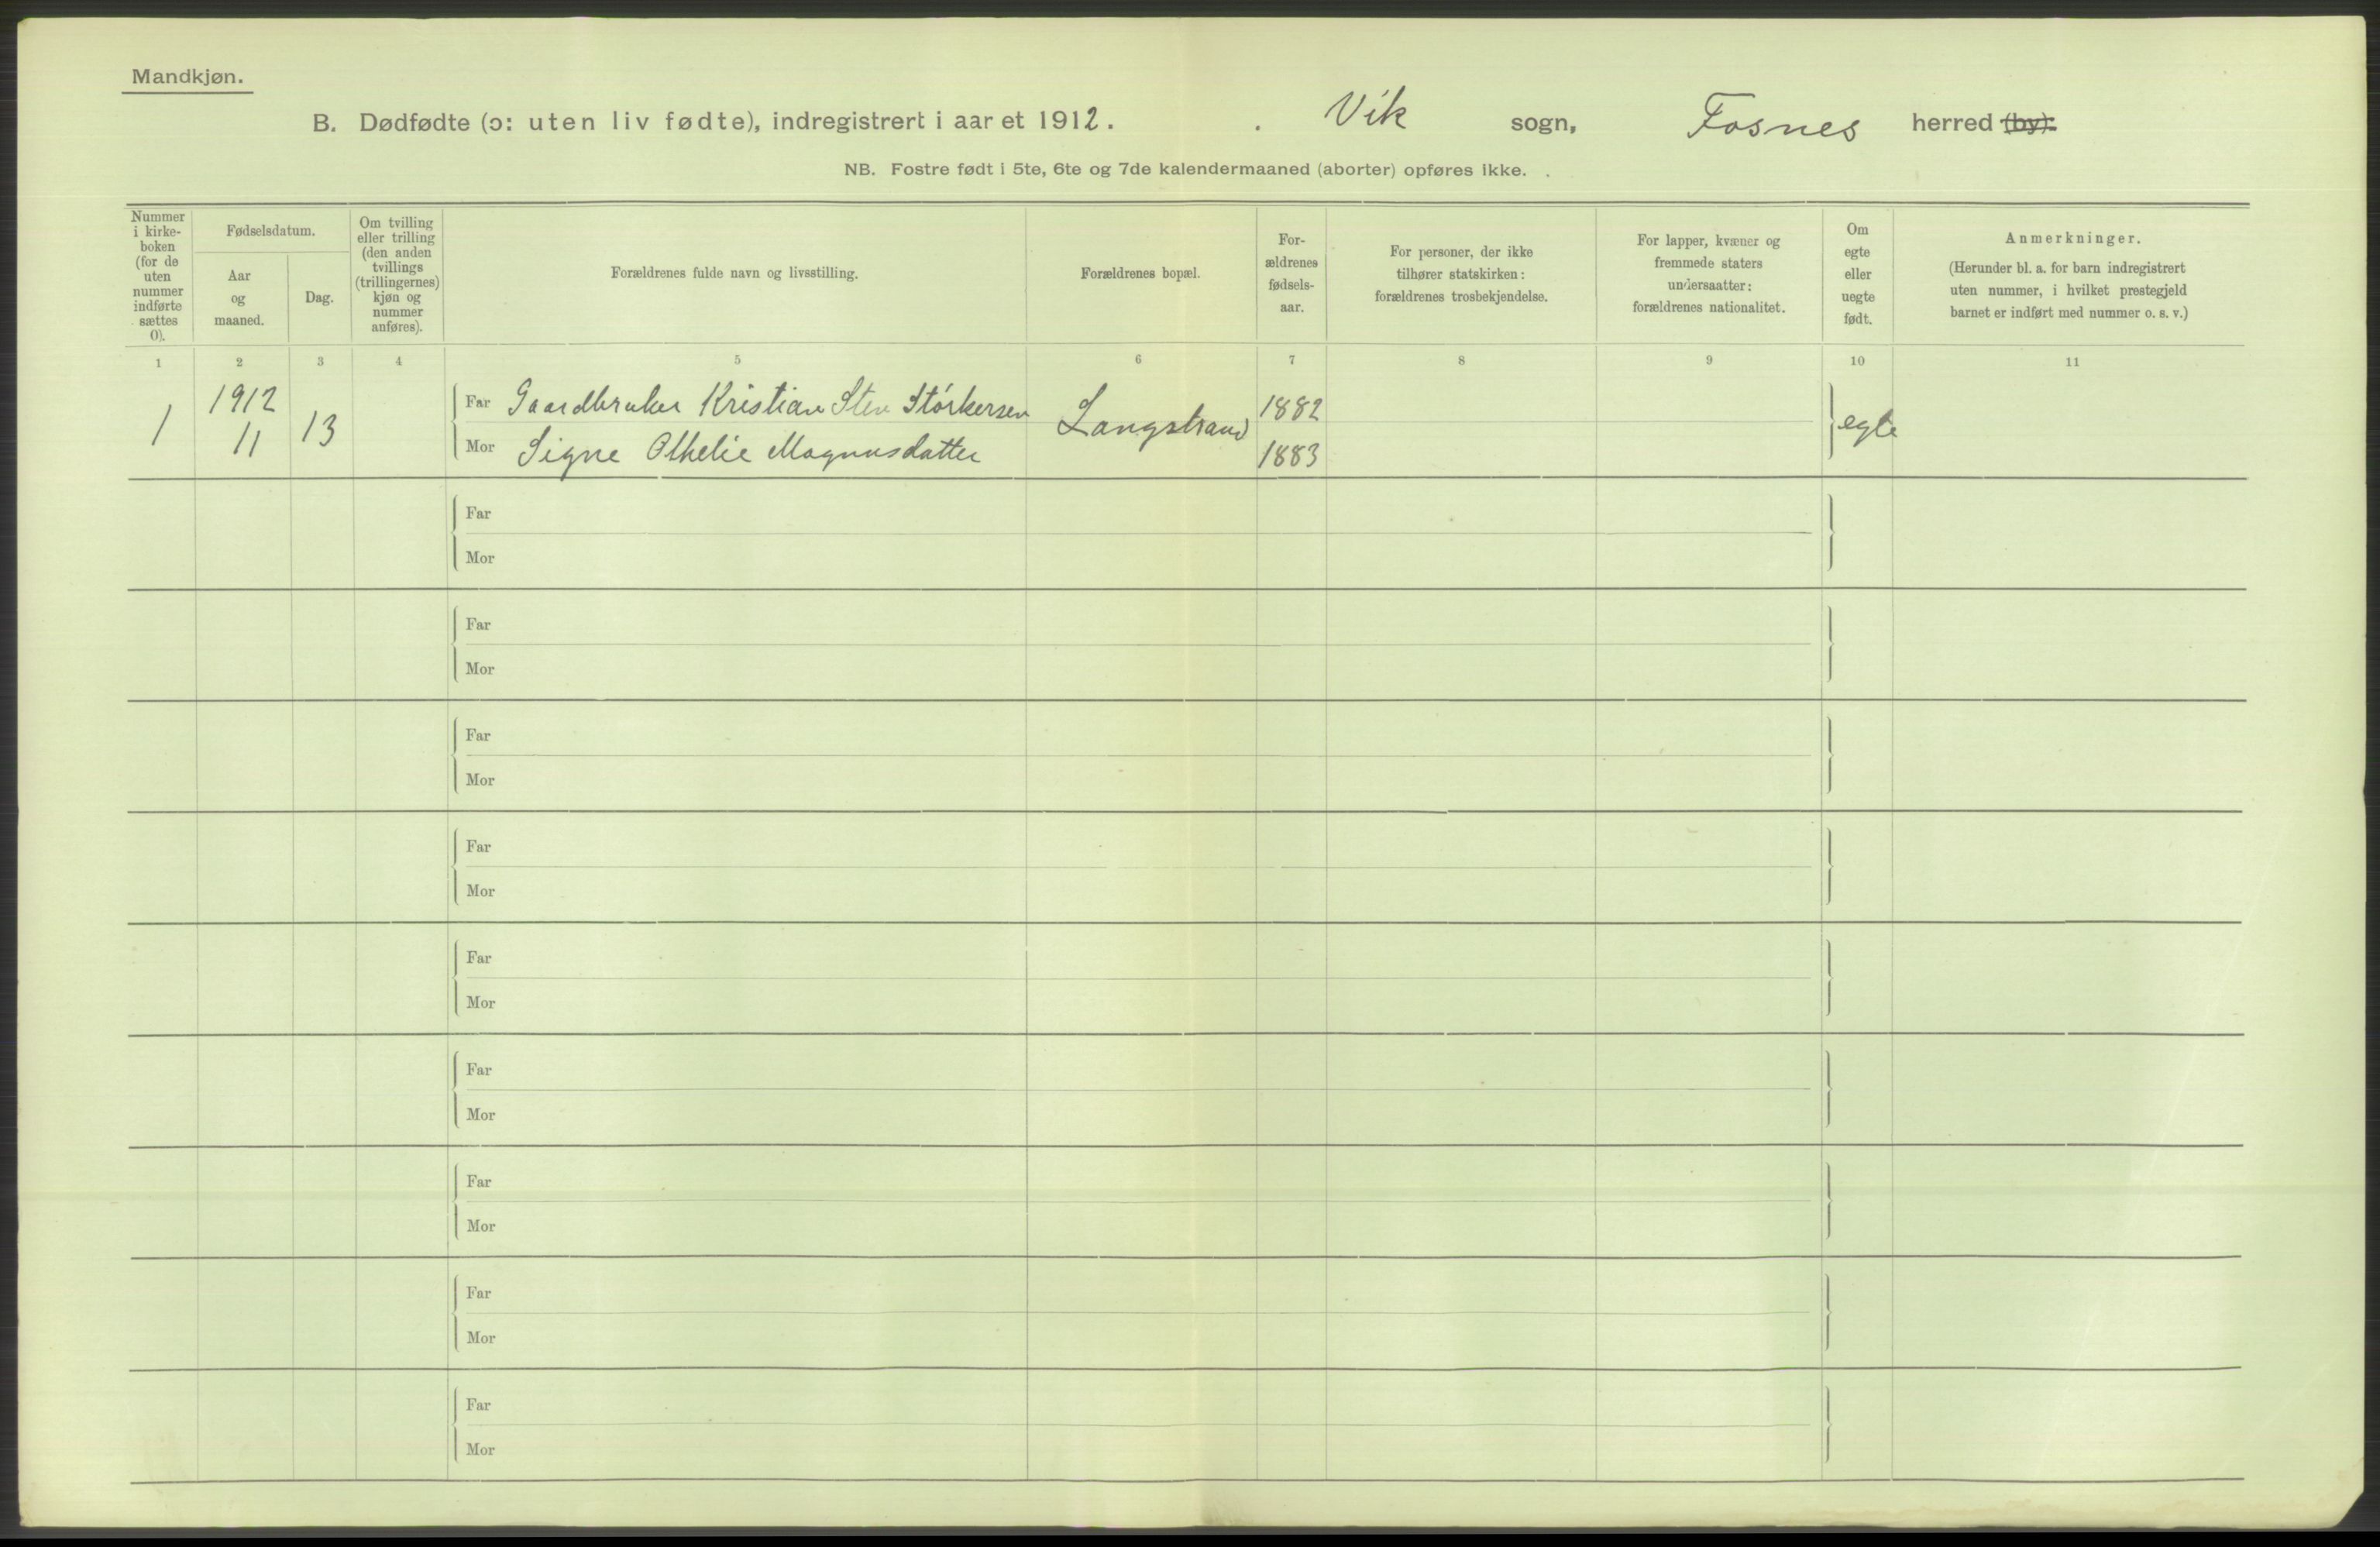 Mandkjøn.
B. Dødfødte (ɔ: uten liv fødte), indregistrert i aaret 1912. Vik sogn, Fosnes herred (by):
NB. Fostre født i 5te, 6te og 7de kalendermaaned (aborter) opføres ikke.
Nummer
i kirke-
boken
(for de
uten
nummer
indførte
sættes
0).
Fødselsdatum.
Aar
og
maaned.
Dag.
Om tvilling
eller trilling
(den anden
tvillings
(trillingernes)
kjøn og
nummer
anføres).
Forældrenes fulde navn og livsstilling.
Forældrenes bopæl.
For-
ældrenes
fødsels-
aar.
For personer, der ikke
tilhører statskirken:
forældrenes trosbekjendelse.
For lapper, kvæner og
fremmede staters
undersaatter:
forældrenes nationalitet.
Om
egte
eller
uegte
født.
Anmerkninger.
(Herunder bl. a. for barn indregistrert
uten nummer, i hvilket prestegjeld
barnet er indført med nummer o. s. v.)
1 2 3 4 5 6 7 8 9 10 11
1 1912 11 13
Far Gaardbruker Kristian Sten Störkersen
Mor Signe Othelie Magnusdatter
Langstrand
1882
1883
egte
Far
Mor
Far
Mor
Far
Mor
Far
Mor
Far
Mor
Far
Mor
Far
Mor
Far
Mor
Far
Mor